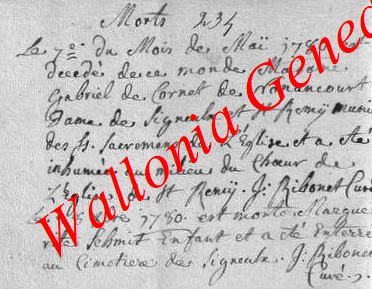 Morts 234
Le 7e. du Mois de Maÿ 178 est
decedé de ce monde Madame
Gabriel de Cornet de
Dame de Signeulx et St Remÿ munie
des St. Sacremens de L'Église et a été
inhumée au milieu du Chœur de
L'Église de St Remÿ. J. Ribonet Curé
1780. est morte Margue
rite Schmit Enfant et a été Enterré
au Cimetiere de Signeulx. J. Ribonet
Curé.
Wallonia Genea